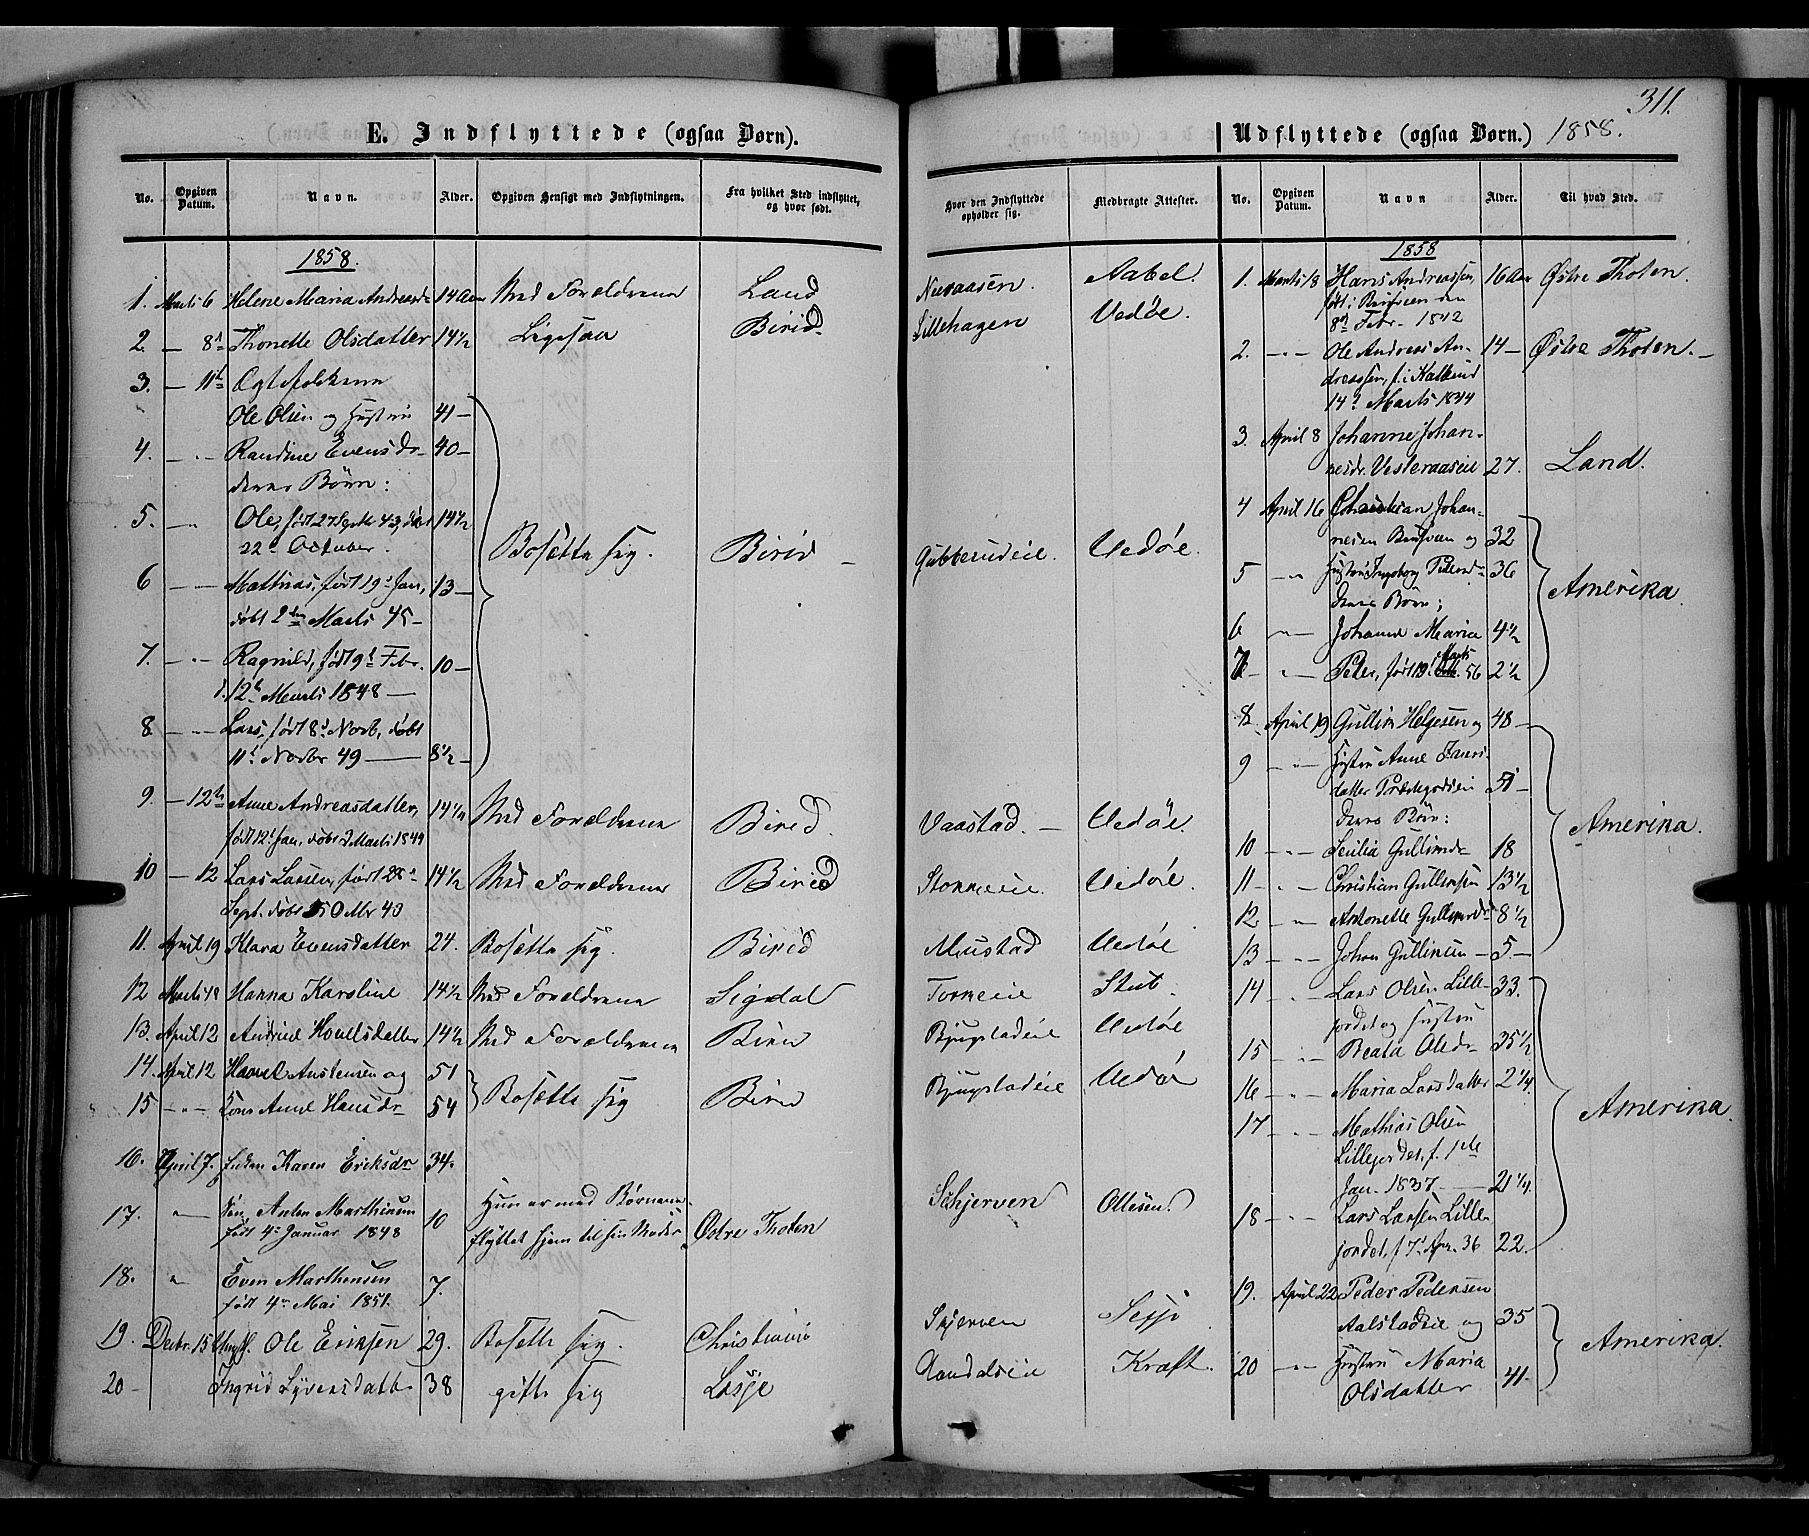 311.
E. Indflyttede (ogsaa Børn).
No. Opgiven Datum. Navn. Alder. Opgiven Hensigt med Indflytningen. Fra hvilket Sted indflyttet, og hvor født. Hvor den Indflyttede opholder sig. Medbragte Attester.
1858.
1. Marts 6 Helene Maria Andreasdr 14 Aar Med Forældrene Land Aabel.
2. — 8de Thonette Olsdatter 14½ Ligesaa Birid. Lillehagen Vedøe.
3. — 11te Ægtefolkene
Ole Olsen og Hustru 41 —
4. — " — Randine Evensdr 40 —
deres Børn:
5. — " Ole, født 27 Septbr 43, døbt 14½
22de October.
Bosætte sig. Birid — Gubberudeie. Vedøe.
6 — — Mathias, født 19de Jan, 13 —
døbt 2den Marts 45 —
7. — " — Ragnild, født 9de Febr. 10 —
d. 12te Marts 1848 —
8 — " — Lars, født 8de Novb, døbt
11te Novbr 49 — 8½ —
9. — 12te Anne Andreasdatter, 14½ Med Forældrene Birid. Vaastad. — Vedøe.
født 12te Jan, døbt 2 Marts 1844
10 — 12 Lars Larsen, født 28de 14½ Med Forældrene Birid Stokkeeie. Vedøe.
Sept. døbt 15 Oktbr 43
11. April 19 Klara Evensdatter 24. Bosætte sig. Birid Mustad Vedøe
12 Marts 18 Hanna Karoline 14½ Med Forældrene Sigdal Stub.
13. April 12 Andrine Hovelsdatter 14½ Med Forældrene Birid Bjugstadeie Vedøe
14. April 12 Hovel Anstensen og 51
Bosætte sig Birid Bjugstadeie Vedøe
15 — " — Kone Anne Hansdr 54
16. April 7. Enken Karen Eriksdr 34.
17. " — Søn, Anton Marthinsen 10 Hun er med Børnene Skjerven Ottesen.
født 4de Januar 1848 flyttet hjem til sin Moder Østre Thoten
18. " Even Marthensen 7.
født 4de Mai 1851.
19. Decbr. 15 Ungk. Ole Eriksen 29. Bosætte sig. Christiania Skjerven
20 — Ingrid Syversdatter 38 gifte sig Lesje Kraft.
Udflyttede (ogsaa Børn.) 1858.
No. Opgiven Datum. Navn Alder. Til hvad Sted.
1858
1. Marts 18 Hans Andreassen, 16 Aar Østre Thoten.
født i den
8de Febr. 1842
2. — " — Ole Andreas An- 14 — Østre Thoten. —
dreassen, f. i
14de Marts 1844
3. April 8 Johanne Johan-
nesdr. Vesteraaseie 27. Land.
4 April 16 Christian Johan-
nesen og 32
5 — " — Hustru Ingeborg Pedersdr 36
deres Børn; Amerika.
6 " — Johanne Maria 4½
7 — " — Peter, født 19de Marts 56 2½
8. April 19 Gullik Helgesen og 48 —
9 — " — Hustru Anne
datter 51 —
deres Børn: Amerika.
10 — " — Cecilia Gulliksdr 18
11 — " — Christian Gulliksen 13½
12. — " — Antonette Gulliksdr 8½
13 — " — Johan Gulliksen — 5 —
14 — " — Lars Olsen Lille- 33.
jordet og Hustru
15 — " — Beata Olsdr 35½
16 — " — Maria Larsdatter 2¼ Amerika.
17 — " — Mathias Olsen
Lillejordet, f. 1ste
Jan. 1837 — 21¼
18 — " — Lars Larsen Lille-
jordet, f 7de Apr. 36 22.
19. April 22 Peder Pedersen
Aalstadeie og 35
Amerika.
20 — " — Hustru Maria
Olsdatter 41 —